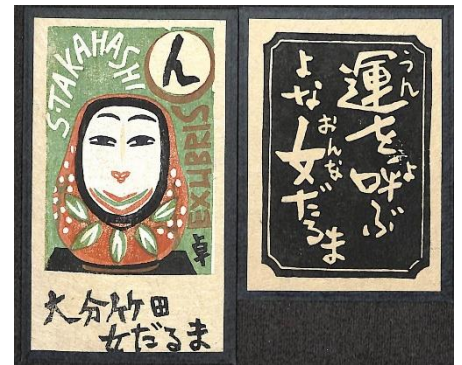 S・TAKAHASHI
ん
EXLIBRIS
卓
大分竹田
女だるま
運を呼ぶ
うん
よ
よな女だるま
おんな